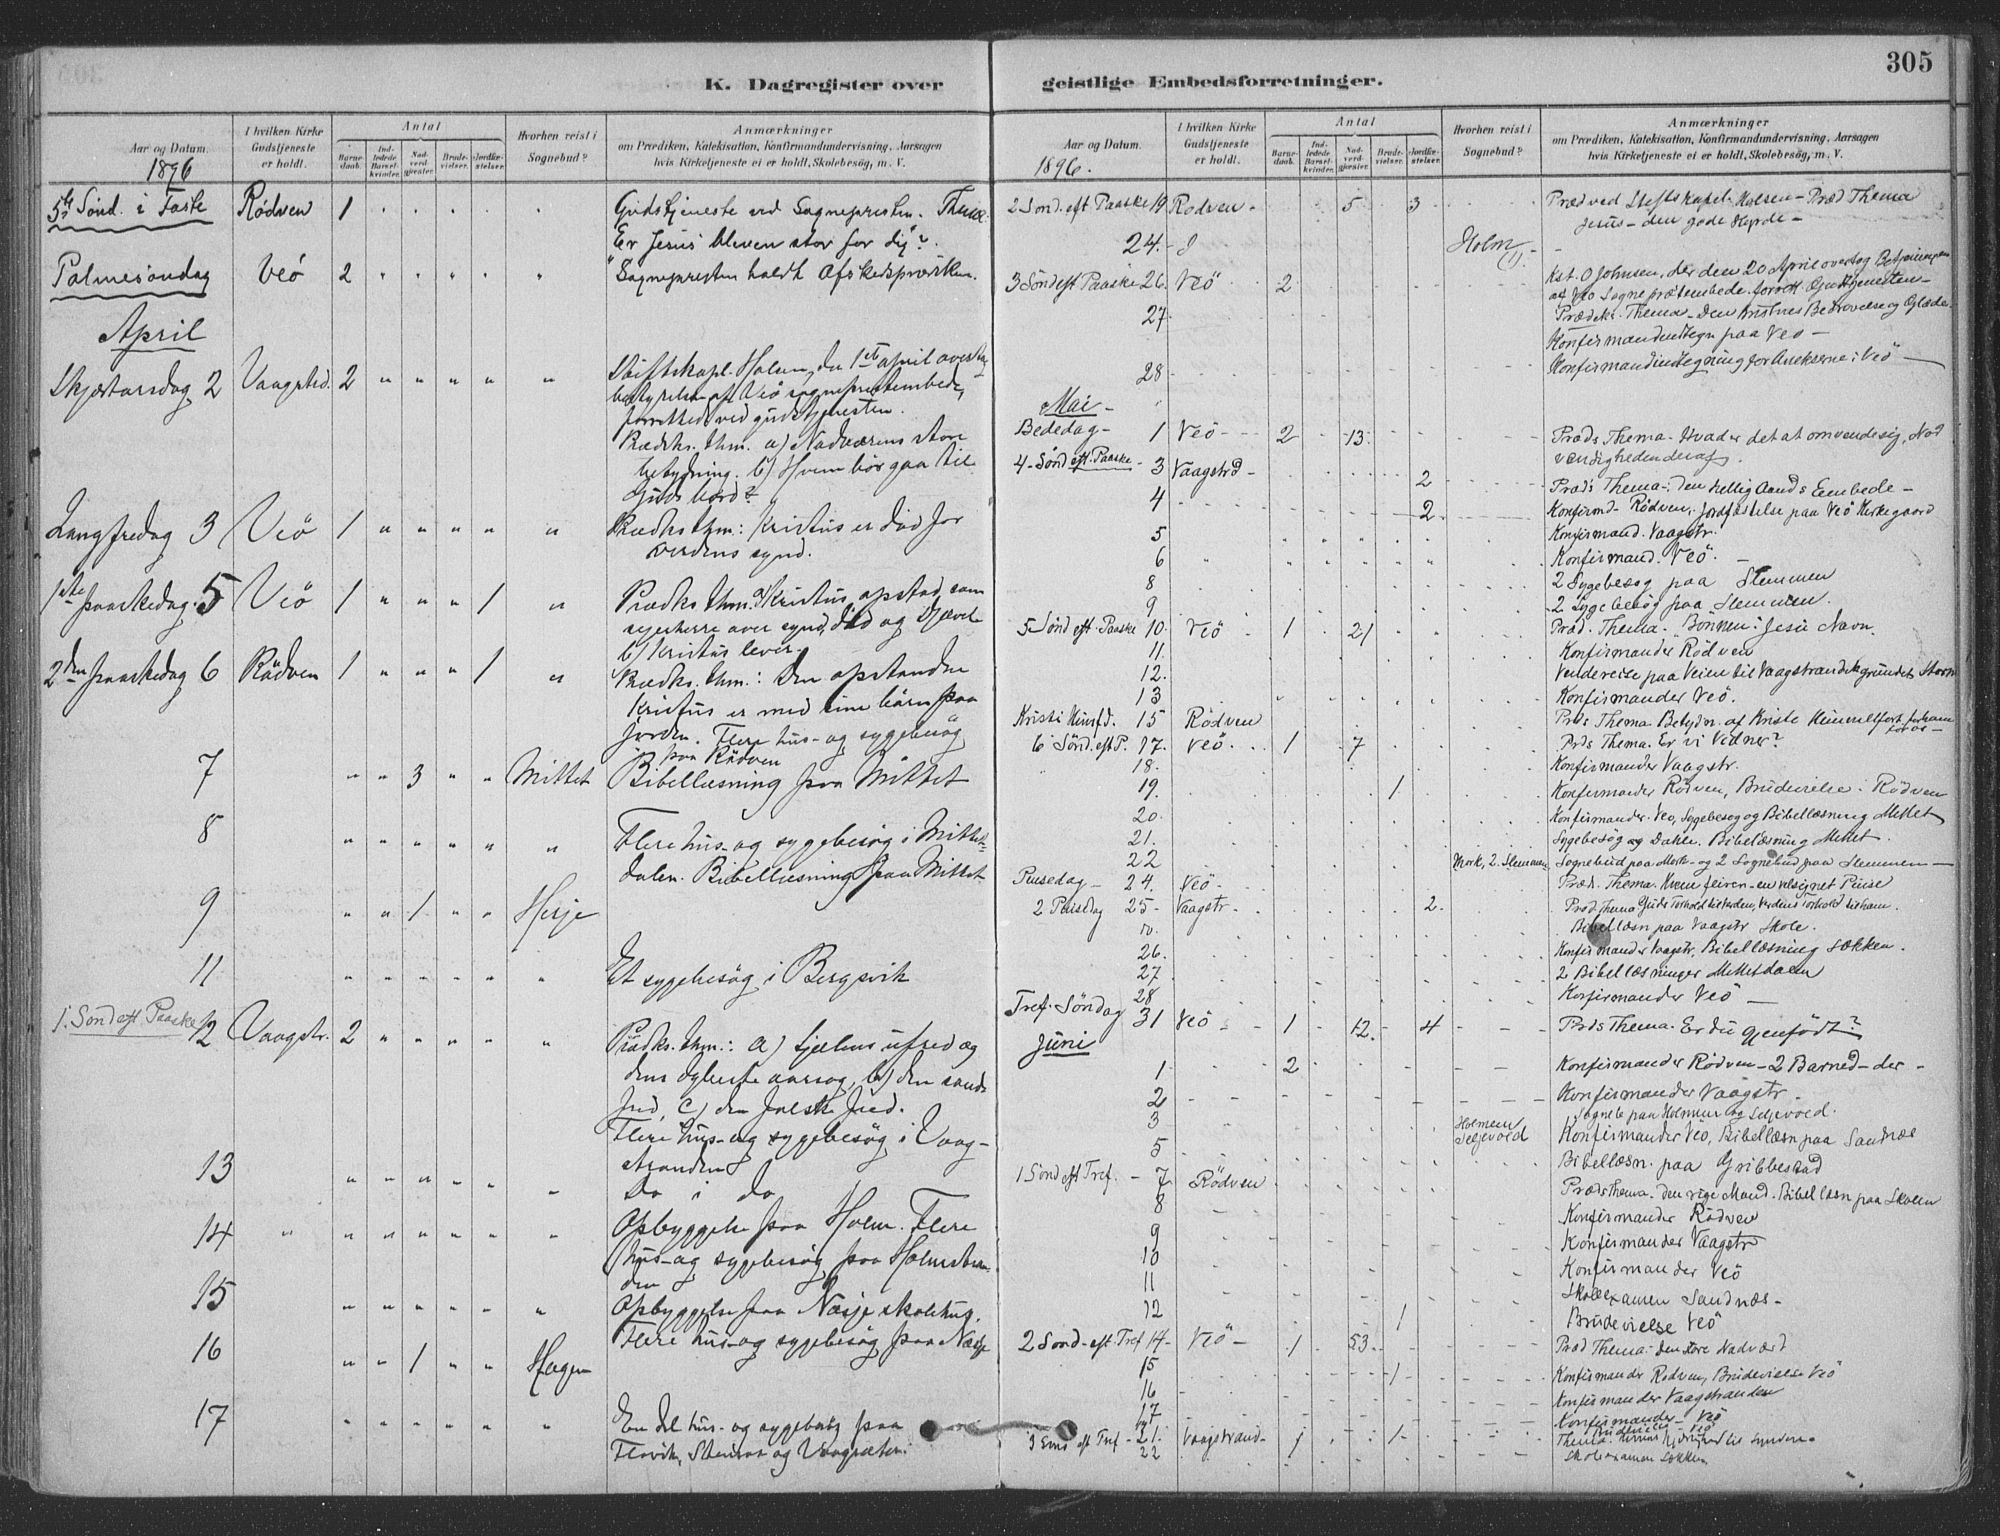 305
K. Dagregister over geistlige Embedsforretninger.
Aar og Datum.
I hvilken Kirke Gudstjeneste er holdt.
Antal
Barnedaab.
Indledede Barselkvinder.
Nadverdgjester.
Brudevielser.
Jordfæstelser.
Hvorhen reist i Sognebud?
Anmærkninger
om Prædiken, Katekisation, Konfirmandundervisning, Aarsagen
hvis Kirketjeneste ei er holdt, Skolebesøg, m. V.
1896
5te Sönd. i Faste Rödven 1 Gudstjeneste ved Sognepresten. Thema:
"Er Jesus bleven stor for dig"?
Palmesöndag Veö 2 Sognepresten holdt Afskedsprædiken.
April
Skjærtorsdag 2 Vaagstrd. 2 Stiftskapl. Holsen, der 1ste april overtog
bestyrelsen af Veö sogneprestembede,
forrettede ved gudstjenesten.
Prædks. thm. a) Nadværens store
betydning. b) Hvem bör gaa til
Guds bord?
Langfredag 3 Veö 1 Prædks thm: Kristus er död for
verdens synd.
1ste paaskedag. 5 Veö 1 1 Prædks. thm. a) Kristus opstod som
sejerherre over synd, död og djævel
b) Kristus lever.
2den paaskedag 6 Rödven 1 1 Prædks. thm.: Den opstandne
Kristus er med sine börn paa
jorden. Flere hus- og sygebesög
paa Rödven
7 3 Mittet Bibellæsning paa Mittet
8 Flere hus- og sygebesög i Mittet-
dalen. Bibellæsning paa Mittet
9 1 Hesje
11 Et sygebesög i Bergsvik
1. Sönd eft. Paaske 12 Vaagstr. 2 Prædks. thm.: a) Sjælens ufred og
dens dybeste aarsag, b) den sande
fred, c) den falske fred.
Flere hus- og sygebesög i Vaag-
stranden
13 Do i do
14 Opbyggelse paa Holm. Flere
hus- og sygebesög paa Holmstran-
den
15 Opbyggelse paa Næsje skolehus.
Flere hus- og sygebesög paa Næsje
16 1 Hagen
17 En del hus- og sygebesög paa
Flovik, Stensaa og Vaagsæter.
Aar og Datum.
I hvilken Kirke Gudstjeneste er holdt.
Antal
Barnedaab.
Indledede Barselkvinder.
Nadverdgjester.
Brudevielser.
Jordfæstelser.
Hvorhen reist i Sognebud?
Anmærkninger
om Prædiken, Katekisation, Konfirmandundervisning, Aarsagen
hvis Kirketjeneste ei er holdt, Skolebesøg, m. V.
1896.
2 Sönd. eft Paaske 19 Rödven 5 3 Præd ved Stiftskapel. Holsen - Præd Thema
Jesus - den gode Hyrde -
24. Holm (1)
3 Sönd eft Paaske 26. Veö 2 Kst. O Johnsen, der den 20 April overtog Bestyrelsen
af Veö Sogneprestembede forrett. Gudstjenesten -
Prædik. Thema - Den Kristnes Bedrövelse og Glæde.
27. Konfirmandindtegn paa Veö -
28 Konfirmandindtegning for Anekserne i Veö -
Mai -
Bededag - 1 Veö 2 13 Præds Thema - Hvad er det at omvende sig, Nød
vendigheden deraf
4 - Sönd eft. Paaske - 3 Vaagstrd - 2 Præds Thema - den hellig Aands Embede -
4 2 Konfirmd. Rödven, Jordfæstelse paa Veö Kirkegaard
5 Konfirmand. Vaagstr.
6 Konfirmand. Veö. -
8 2 Sygebesög paa Slemmen
9 2 Sygebesög paa Slemmen.
5 Sönd eft. Paaske 10. Veö 1 21 Præd. Thema - Bönnen i Jesu Navn.
11. Konfirmander Rödven
12. Vendereise paa Veien til Vaagstranden grundet Storm
13 Konfirmander Veö.
Kristi Himfd. 15 Rödven Prds Thema Betydn. af Kristi Himmelfart for ham
for os -
6 Sönd. eft P. 17. Veö. 1 7 Prds Thema. Er vi Vidner?
18. Konfirmander Vaagstr.
19. 1 Konfirmander Rödven, Brudevielse i Rödven
20. Konfirmander Veö, Sygebesög og Bibellæsning Mittet
21. Sygebesög og Bibellæsning Mittet.
22 Mork, 2. Slemmen Sognebud paa Mork - og 2 Sognebud paa Slemmen -
Pinsedag - 24. Veö - Præd. Thema Hvem feirer en velsignet Pinse
2 Pinsedag 25 - Vaagstr - 2. Præd Thema Guds Forhold til Verden, Verdens Forhold til ham.
Bibellæsn paa Vaagstr Skole.
26. Konfirmander Vaagstr, Bibellæsning Sækken.
27 2 Bibellæsninger Mittetdalen
28 Konfirmander Veö -
Tref. Söndag 31 Veö 1 12. 4 Prds Thema. Er du gjenfödt?
Juni
1 2 Konfirmander Rödven - 2 Barned - der -
2 Konfirmander Vaagstr. -
3 Holmem Seljevold Sogneb paa Holmem og Seljevold.
Konfirmander Veö, Bibellæsn paa Sandnes
5 Bibellæsn. paa Gribbestad
1 Sönd eft Tref. - 7 Rödven Præds Thema - den rige Mand. Bibellæsn paa Skolen
8 Konfirmander Rödven
9 Konfirmander Vaagstr
10 Konfirmander Veö
11 Skoleexamen Sandnæs -
12 1 Brudevielse Veö
2 Sönd - eft Tref 14 - Veö - 1 53. Præd Thema - den store Nadværd
15 1 Konfirmander Rödven, Brudevielse Veö
16 Konfirmander Vaagstranden
17 Konfirmander - Veö
19 Brudevielse Veö
3 Sönd eft Tref - 21. Vaagstrand - 1 1 Thema. Jesus Kjærlighed til Syndere -
22 Skoleexamen Sækken